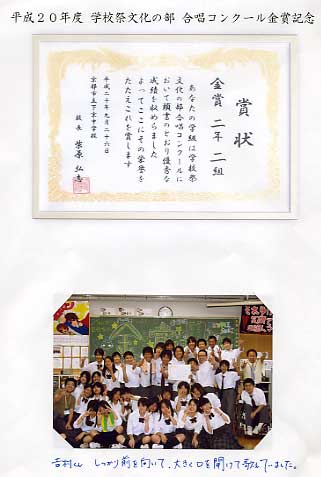 平成２０年度 学校祭文化の部 合唱コンクール金賞記念
賞状
金賞 二年 二組
あなたの学級は学校祭
文化の部合唱コンクールに
おいて頭書のとおり優秀な
成績を収められました
よってここにその栄誉を
たたえこれを賞します
平成二十年九月二十六日
京都市立下京中学校
校長 柴原 弘志
吉村くん しっかり前を向いて、大きく口を開けて歌えていました。